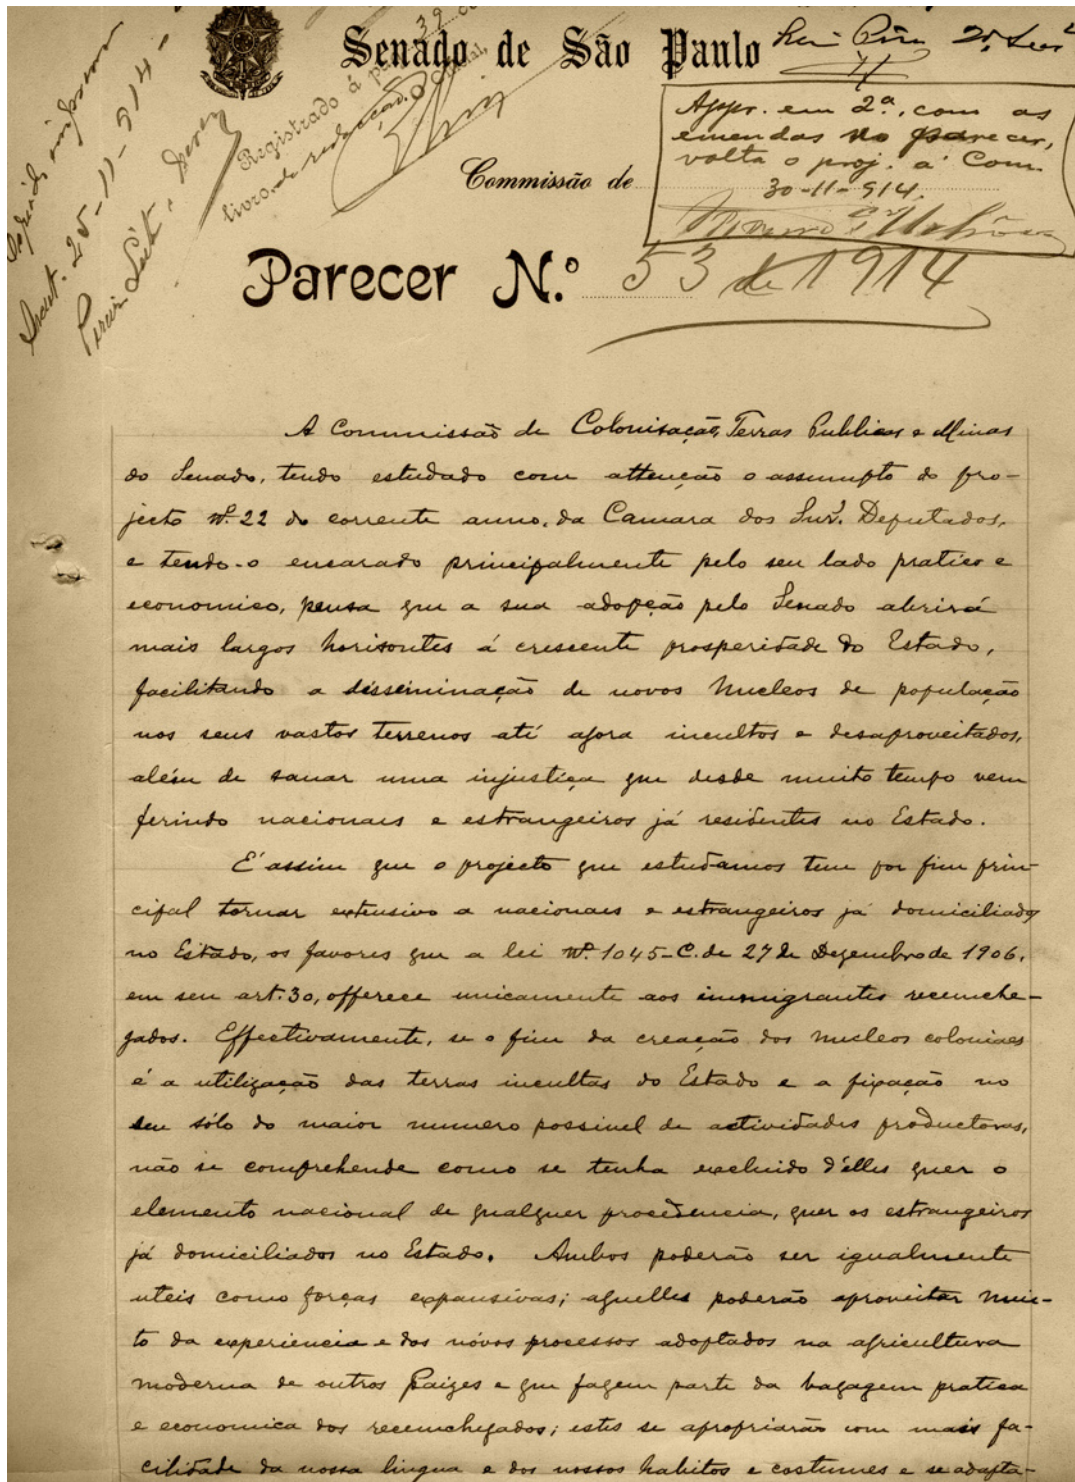 Senado de São Paulo
Registrado á
livro de redacção
Appr. em 2ª, com as
emendas no parecer,
volta o proj. á Com.
30-11-914.
Commissão de
25-11-914
Parecer N.º 53 de 1914
A Commissão de Colonisação, Terras Publicas e Minas
do Senado, tendo estudado com attenção o assumpto do pro-
jecto Nº 22 do corrente anno, da Camara dos Snrs. Deputados,
e tendo-o encarado principalmente pelo seu lado pratico e
economico, pensa que a sua adopção pelo Senado abrirá
mais largos horisontes á crescente prosperidade do Estado,
facilitando a disseminação de novos Nucleos de população
nos seus vastos terrenos até agora incultos e desaproveitados,
além de sanar uma injustiça que desde muito tempo vem
ferindo nacionaes e estrangeiros já residentes no Estado.
É assim que o projecto que estudamos tem por fim prin-
cipal tornar extensivo a nacionaes e estrangeiros já domiciliados
no Estado, os favores que a lei Nº 1045-C. de 27 de Dezembro de 1906,
em seu art. 30, offerece unicamente aos immigrantes recemche-
gados. Effectivamente, se o fim da creação dos nucleos coloniaes
é a utilização das terras incultas do Estado e a fixação no
seu sólo do maior numero possivel de actividades productoras,
não se comprehende como se tenha excluido d'elles quer o
elemento nacional de qualquer procedencia, quer os estrangeiros
já domiciliados no Estado. Ambos poderão ser igualmente
uteis como forças expansivas; aquelles poderão aproveitar mui-
to da experiencia e dos nóvos processos adoptados na agricultura
moderna de outros Paizes e que fazem parte da bagagem pratica
e economica dos recemchegados; estes se apropriarão com mais fa-
cilidade da nossa lingua e dos nossos habitos e costumes e se adapta-